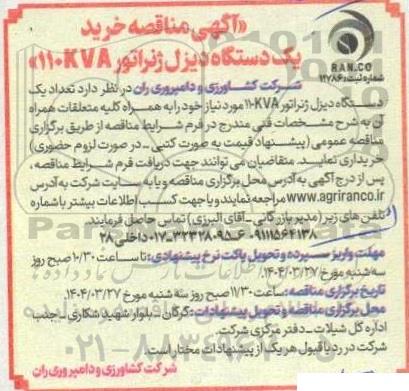 «آگهی مناقصه خرید
یک دستگاه دیزل ژنراتور ۱۱۰KVA»
RAN.CO
شماره ثبت: ۱۲۷۸۶
شرکت کشاورزی و دامپروری ران در نظر دارد تعداد یک
دستگاه دیزل ژنراتور ۱۱۰KVA مورد نیاز خود را به همراه کلیه متعلقات همراه
آن به شرح مشخصات فنی مندرج در فرم شرایط مناقصه از طریق برگزاری
مناقصه عمومی (پیشنهاد قیمت به صورت کتبی - در صورت لزوم حضوری)
خریداری نماید. متقاضیان می توانند جهت دریافت فرم شرایط مناقصه،
پس از درج آگهی به آدرس محل برگزاری مناقصه و یا به سایت شرکت به آدرس
www.agriranco.ir مراجعه نمایند و یا جهت کسب اطلاعات بیشتر با شماره
تلفن های زیر (مدیر بازرگانی - آقای البرزی) تماس حاصل فرمایند.
۰۹۱۱۱۵۶۴۱۳۸ ۶-۰۱۷-۳۲۳۲۸۰۹۵ داخلی ۲۸
مهلت واریز سپرده و تحویل پاکت نرخ پیشنهادی: تا ساعت ۱۰/۳۰ صبح روز
سه شنبه مورخ ۱۴۰۴/۰۳/۲۷.
تاریخ برگزاری مناقصه: ساعت ۱۱/۳۰ صبح روز سه شنبه مورخ ۱۴۰۴/۰۳/۲۷.
محل برگزاری مناقصه و تحویل پیشنهادات: گرگان - بلوار شهید شکاری - جنب
اداره کل شیلات - دفتر مرکزی شرکت.
شرکت در رد یا قبول هر یک از پیشنهادات مختار است.
شرکت کشاورزی و دامپروری ران